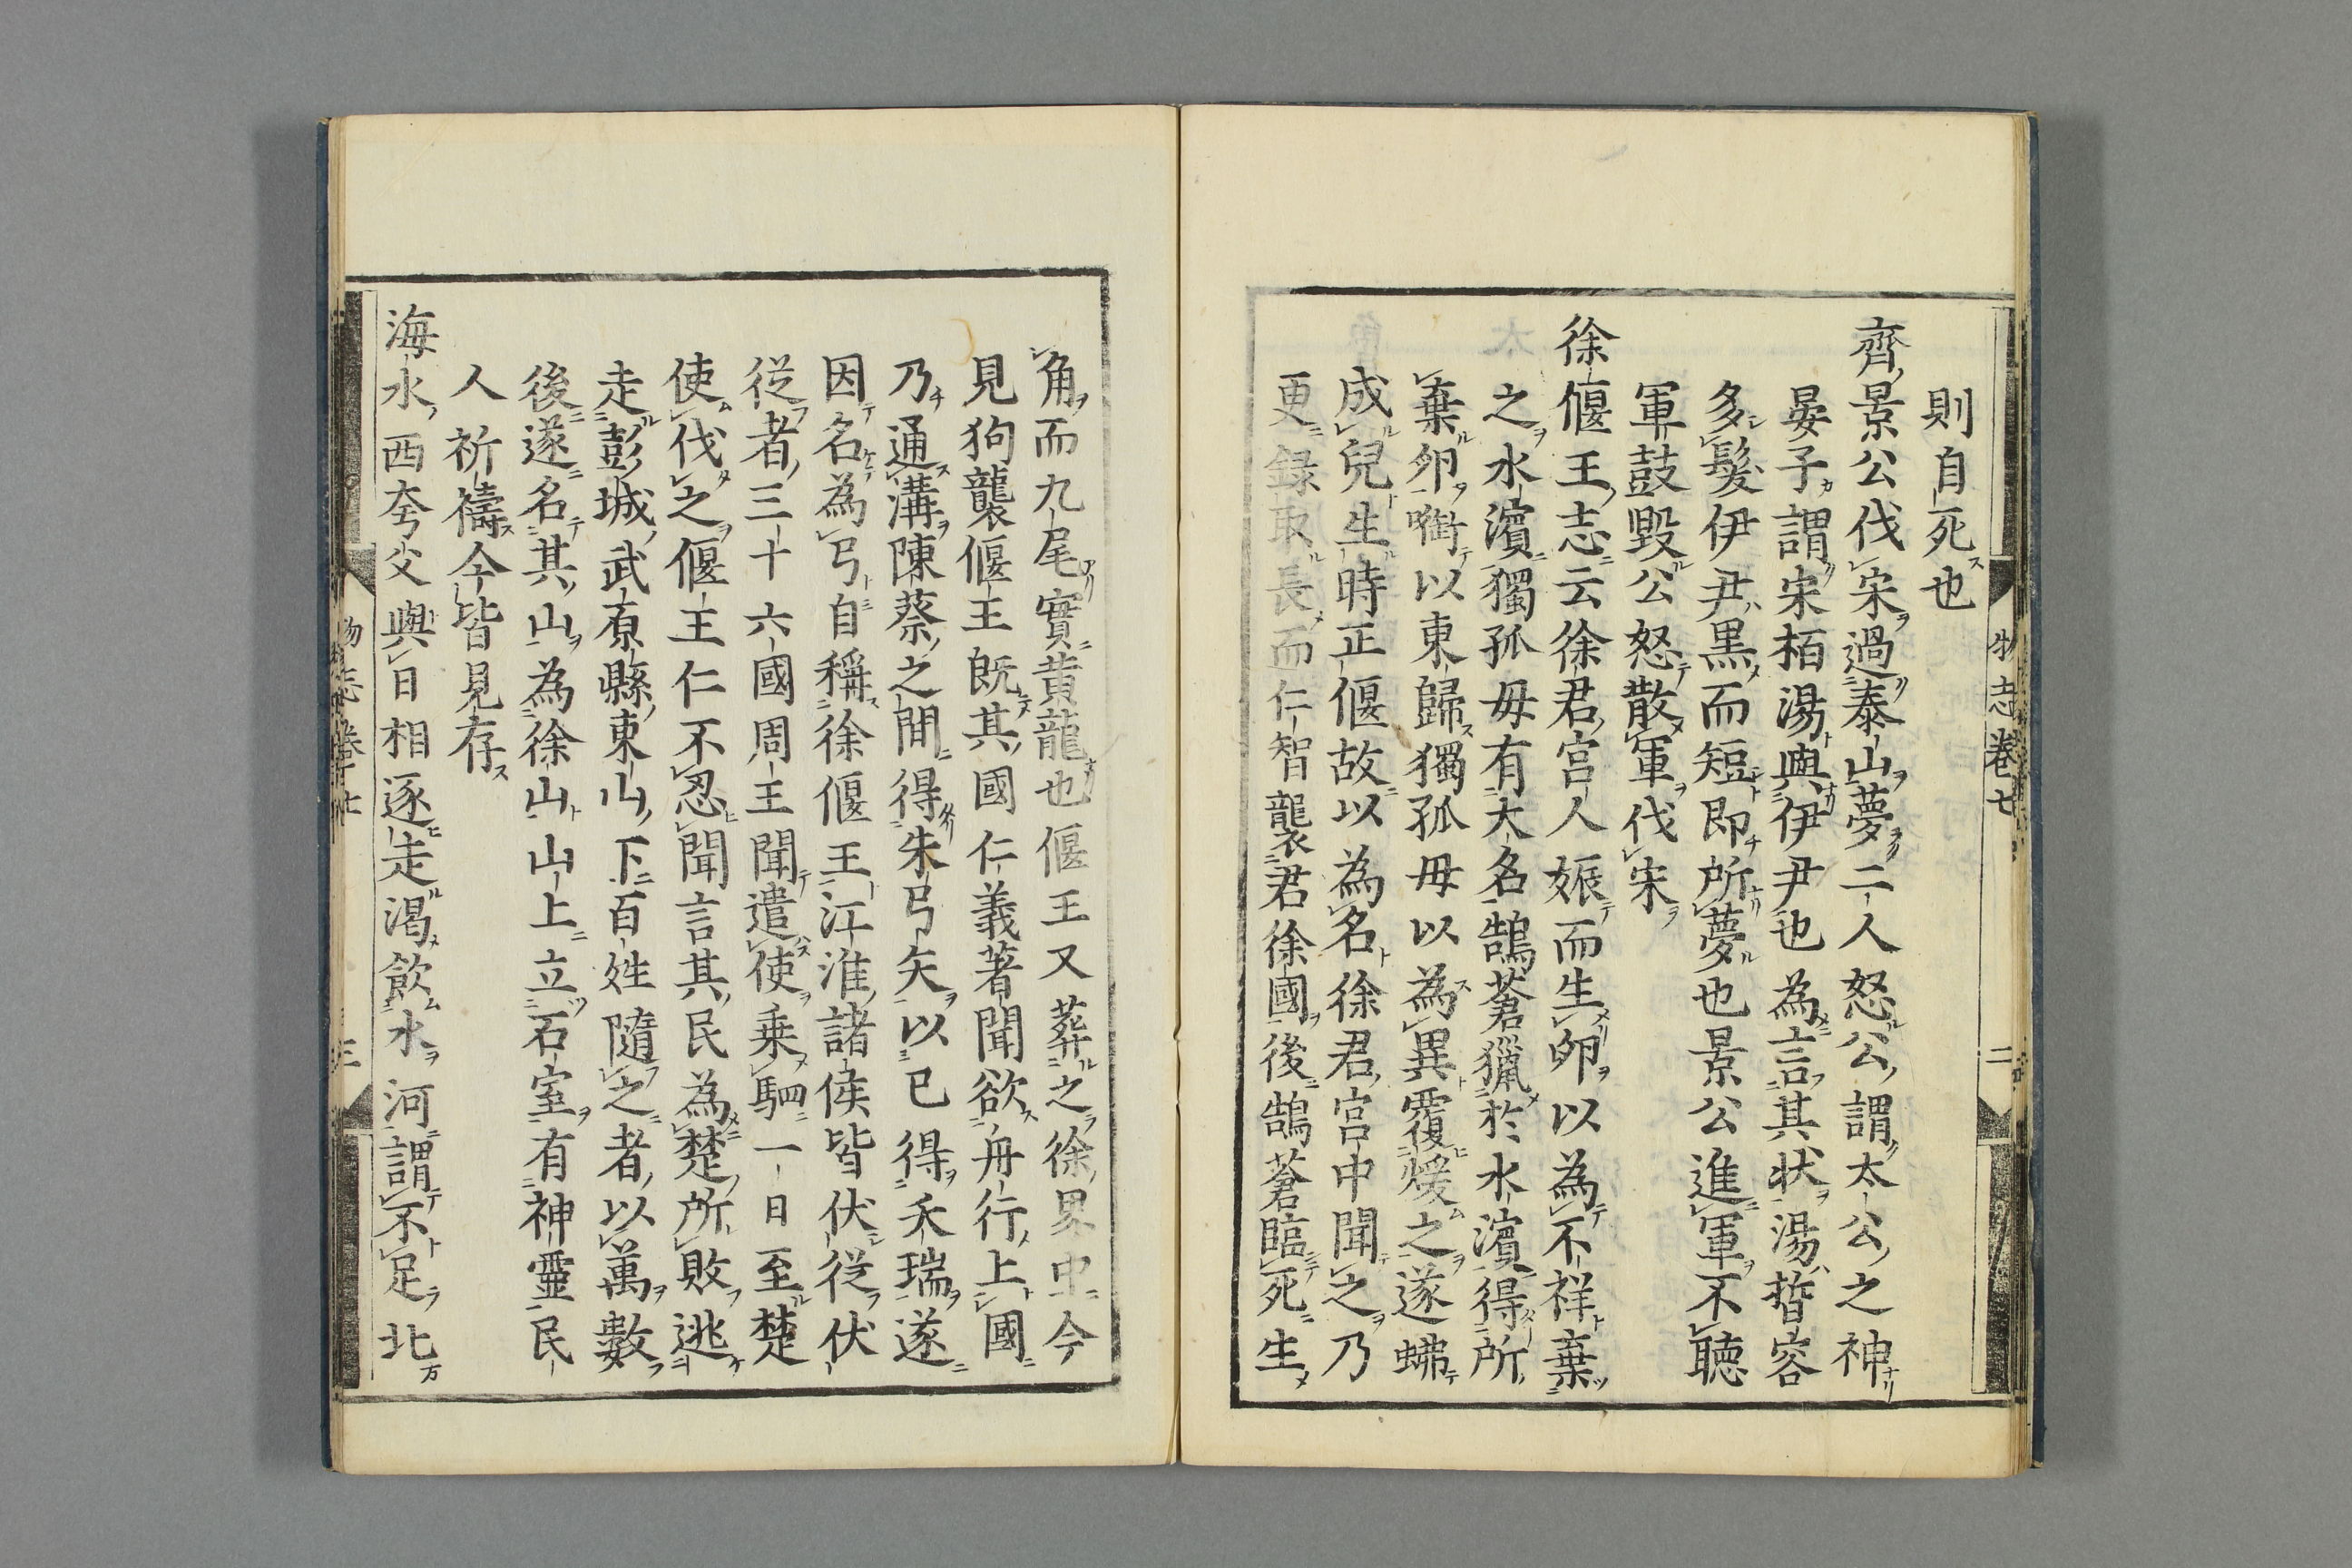 則自死也
齊景公伐宋過泰山夢二人怒公謂太公之神
晏子謂宋栢湯與伊尹也為言其状湯晳容
多髮伊尹黒而短即所夢也景公進軍不聴
軍鼓毀公怒散軍伐宋
徐偃王志云徐君宮人娠而生卵以為不祥棄
之水濵獨孤母有犬名鵠蒼獵於水濵得所
棄卵啣以東歸獨孤母以為異覆煖之遂𧊲
成兒生時正偃故以為名徐君宮中聞之乃
更録取長而仁智襲君徐國後鵠蒼臨死生
物志卷七
二
角而九尾實黄龍也偃王又葬之徐界中今
見狗襲偃王既其國仁義著聞欲舟行上國
乃通溝陳蔡之間得朱弓矢以已得天瑞遂
因名為弓自稱徐偃王江淮諸侯皆伏従伏
従者三十六國周王聞遣使乗駟一日至楚
使伐之偃王仁不忍聞言其民為楚所敗逃
走彭城武原縣東山下百姓隨之者以萬數
後遂名其山為徐山山上立石室有神靈民
人祈禱今皆見存
海水西夸父與日相逐走渇飲水河謂不足北
物志卷七
三